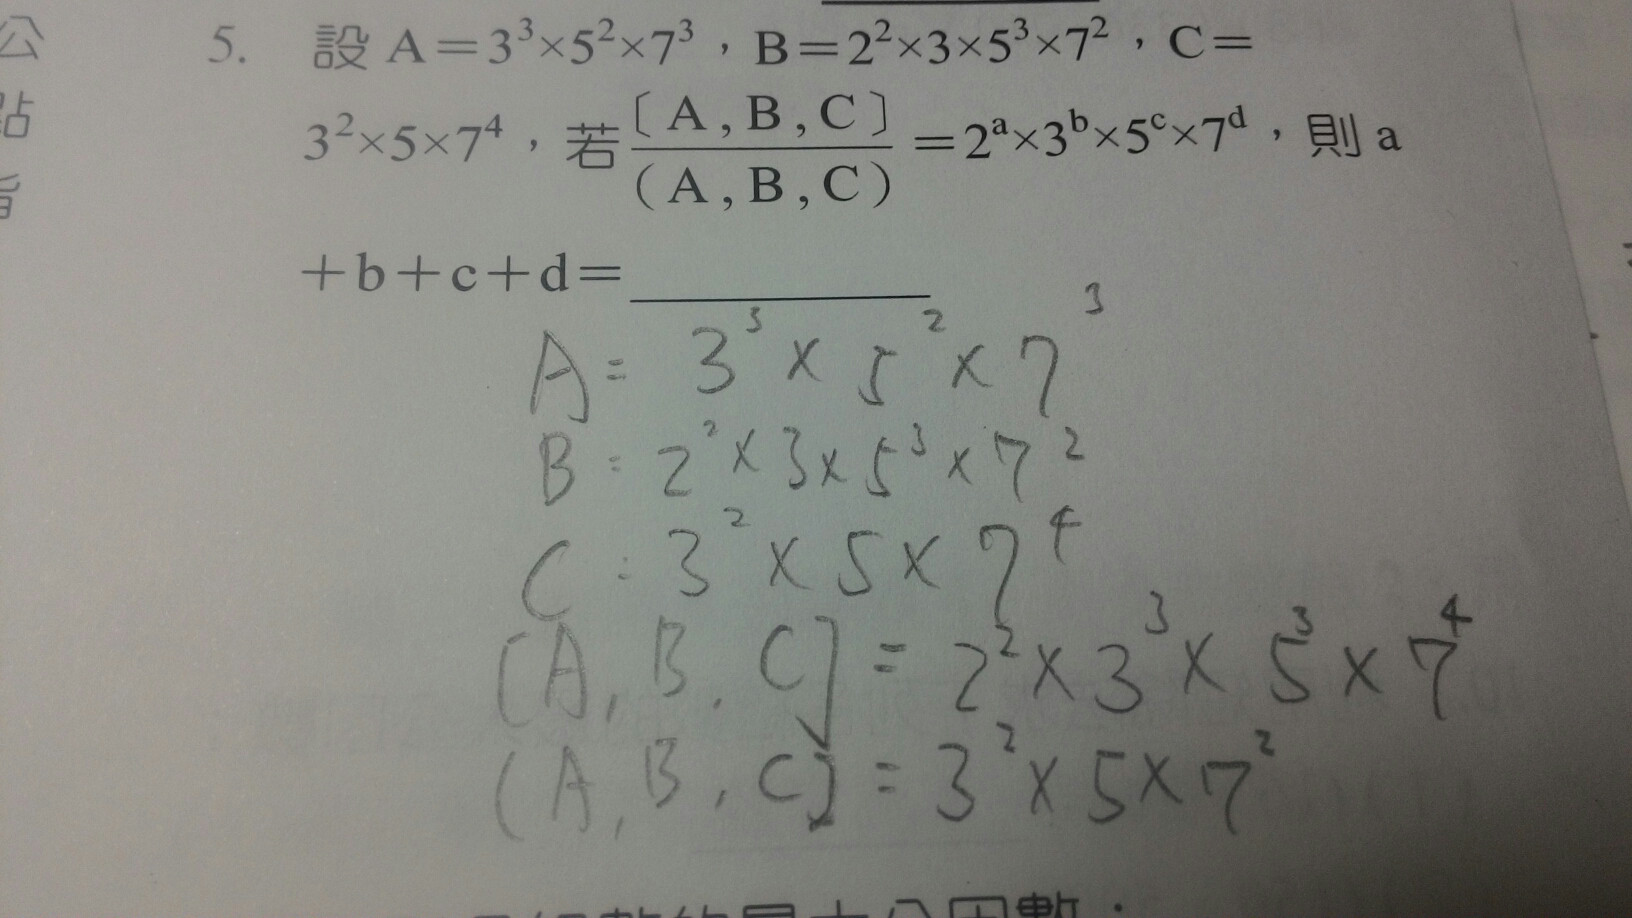 公
點
5. 設 A=3³×5²×7³，B=2²×3×5³×7²，C=
3²×5×7⁴，若 [A,B,C] / (A,B,C) =2ᵃ×3ᵇ×5ᶜ×7ᵈ，則 a
+b+c+d=
A= 3³ × 5² × 7³
B = 2² × 3 × 5³ × 7²
C = 3² × 5 × 7⁴
[A, B, C] = 2² × 3³ × 5³ × 7⁴
(A, B, C) = 3² × 5 × 7²